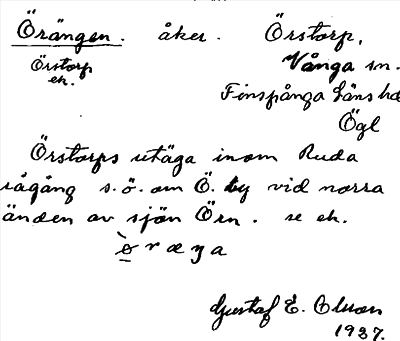 Örängen. åker. Örstorp,
Örstorp Vånga sn.
ek.
Finspånga Läns hd
Ögl
Örstorps utäga inom Ruda
rågång s.ö. om Ö. by vid norra
änden av sjön Örn. se ek.
Gustaf E. Olson
1937.